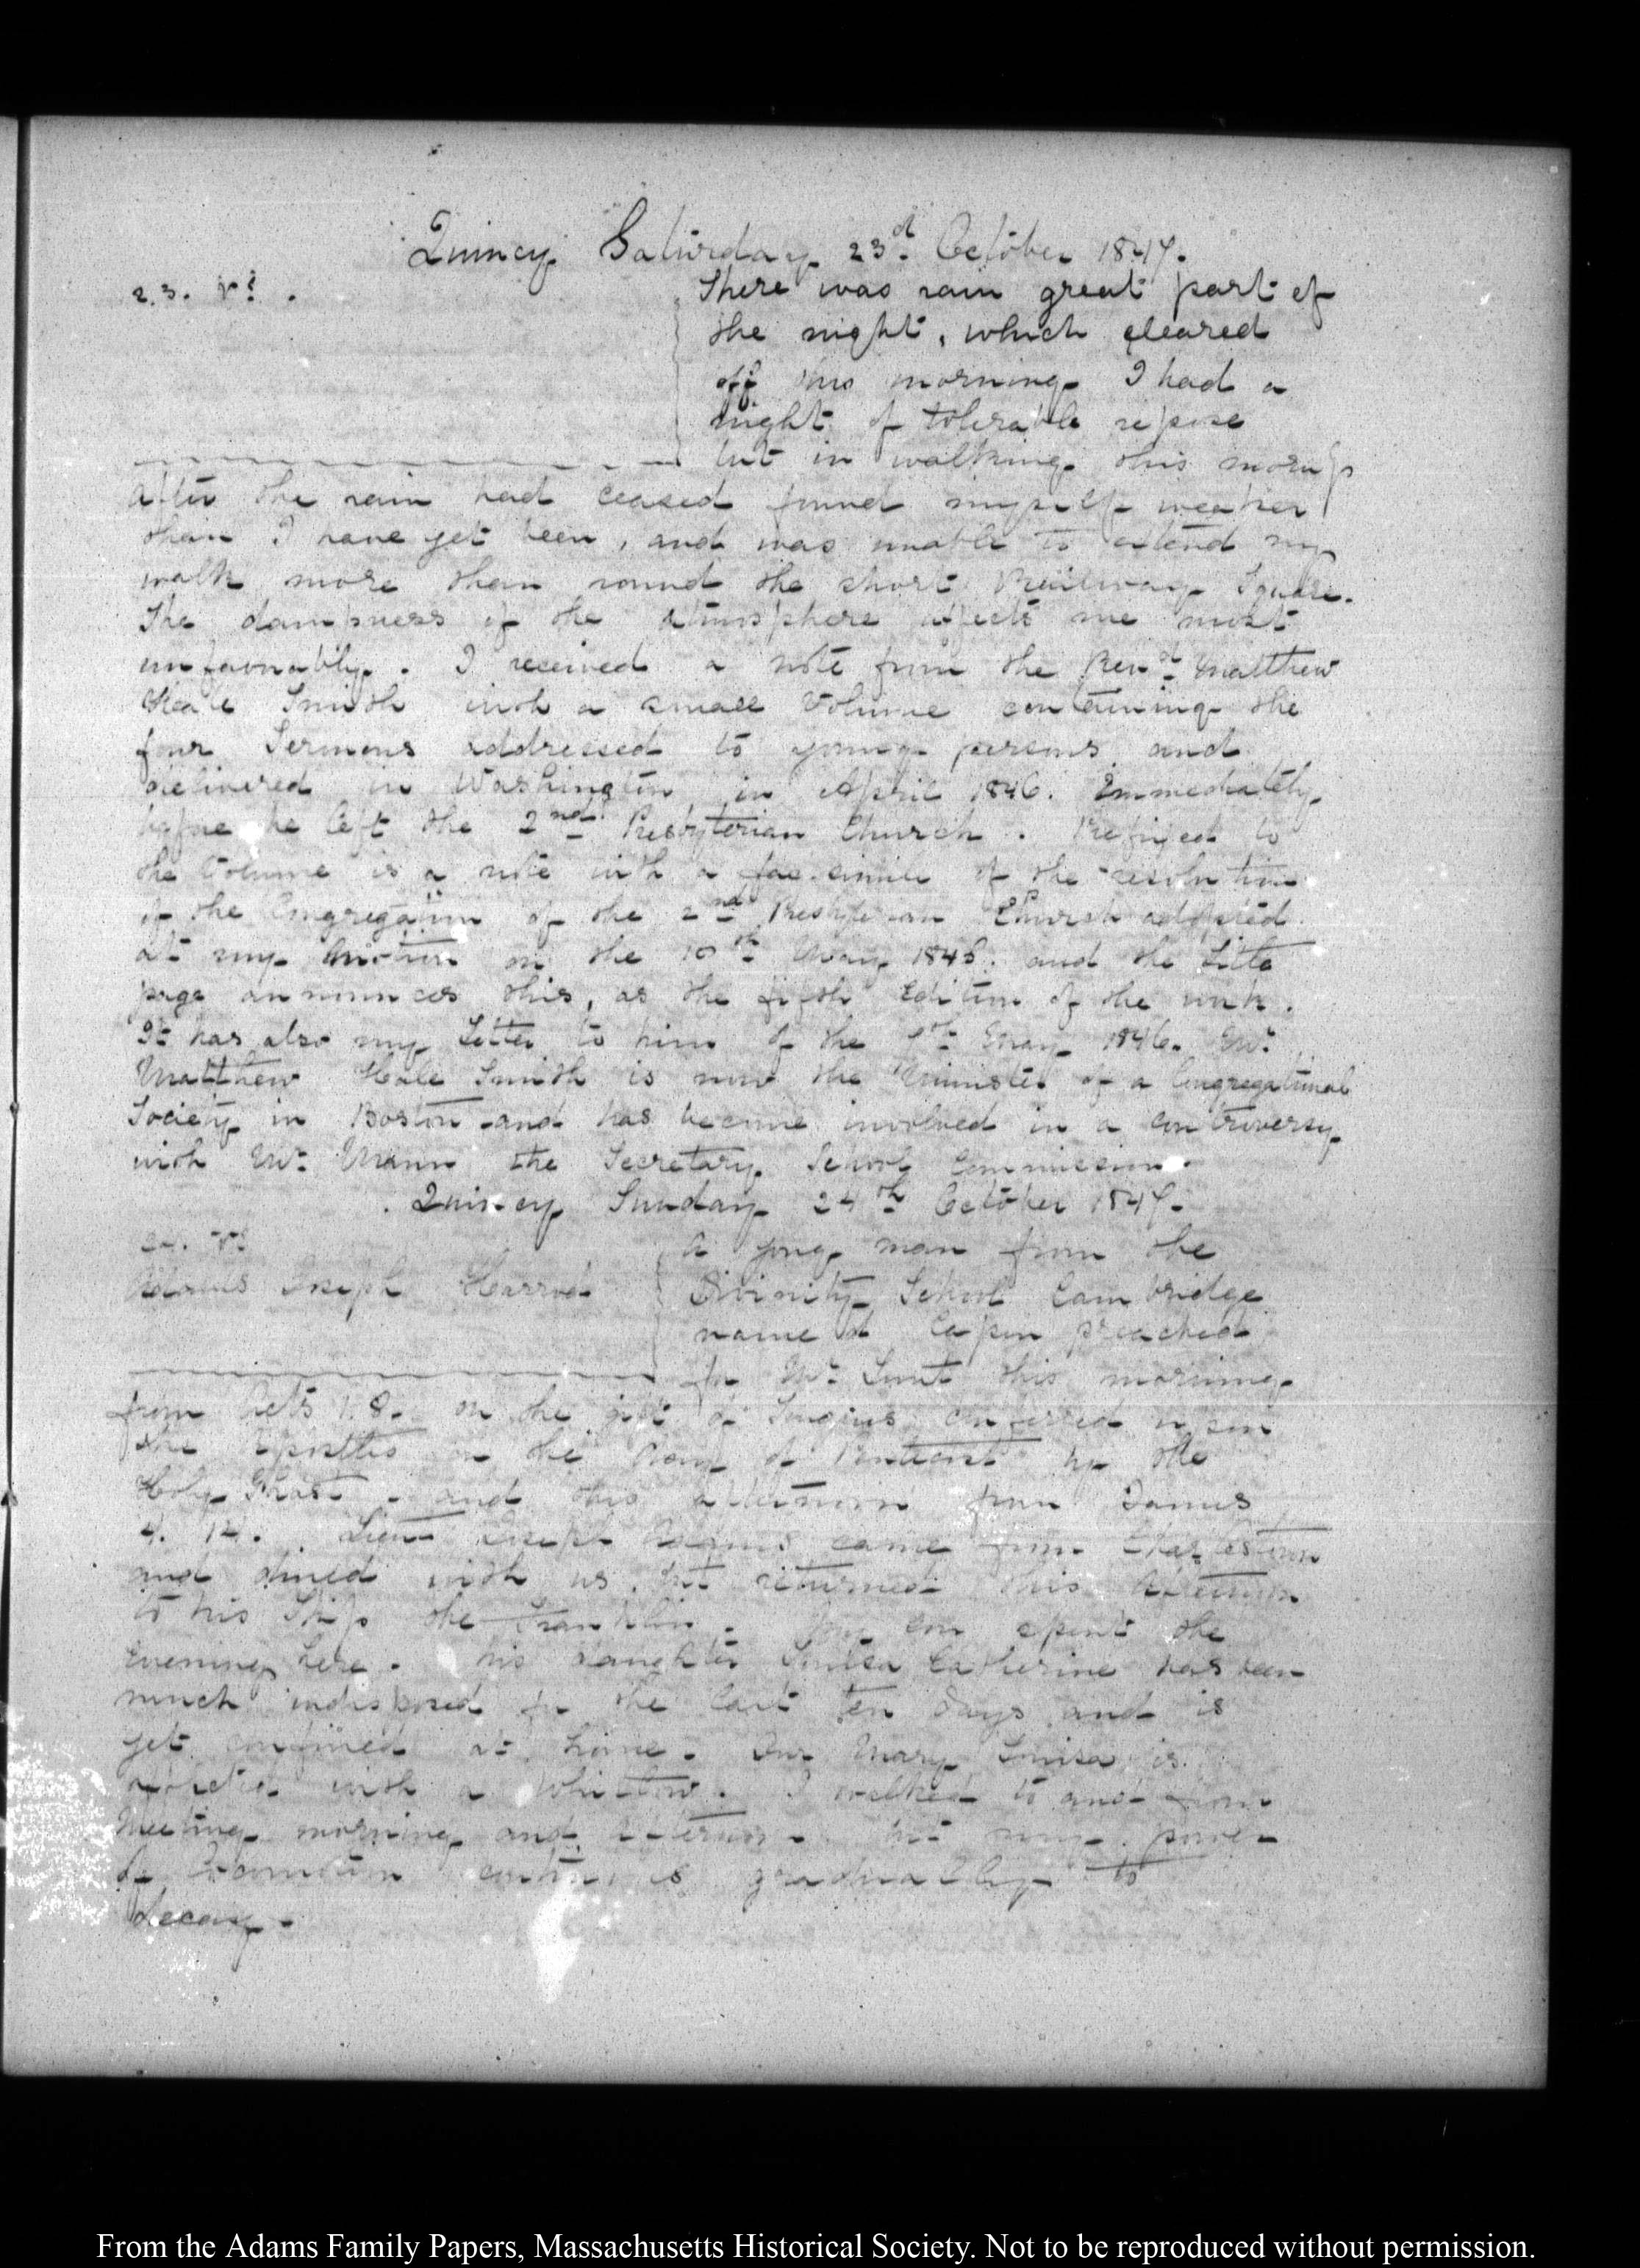 Quincy Saturday 23d. October 1847.
23. VI.
There was rain great part of
the night, which cleared
off this morning. I had a
night of tolerable repose
but in walking this morng
after the rain had ceased found myself weaker
than I have yet been, and was unable to extend my
walk more than round the short Railway Square.
The dampness of the atmosphere affects me most
unfavorably. I received a note from the Revd. Matthew
Hale Smith with a small volume containing the
four Sermons addressed to young persons and
delivered in Washington in April 1846. Immediately
before he left the 2nd. Presbyterian Church. Prefixed to
the volume is a note with a fac-simile of the resolution
of the Congregation of the 2nd. Presbyterian Church adopted
at my motion on the 10th. May 1846. and the title
page announces this, as the fifth Edition of the work.
It has also my Letter to him of the May 1846. Mr.
Matthew Hale Smith is now the Minister of a Congregational
Society in Boston and has become involved in a controversy
with Mr. Mann the Secretary School Commission.
Quincy Sunday 24th. October 1847.
24. VI.
Adams Joseph Harrod
A young man from the
Divinity School Cambridge
named Capen preached
for Mr. Lunt this morning
from Acts 1. 8. on the gift of Tongues conferred upon
the Apostles on the day of Pentecost by the
Holy Ghost. and this afternoon from James
4. 14. Lieut Joseph Adams came from Charlestown
and dined with us. but returned this afternoon
to his Ship the Franklin. My son spent the
evening here. his daughter Louisa Catherine has been
much indisposed for the last ten days and is
yet confined at home. our Mary Louisa is
afflicted with a whitlow. I walked to and from
Meeting morning and afternoon. but my power
of locomotion continues gradually to
decay.
From the Adams Family Papers, Massachusetts Historical Society. Not to be reproduced without permission.